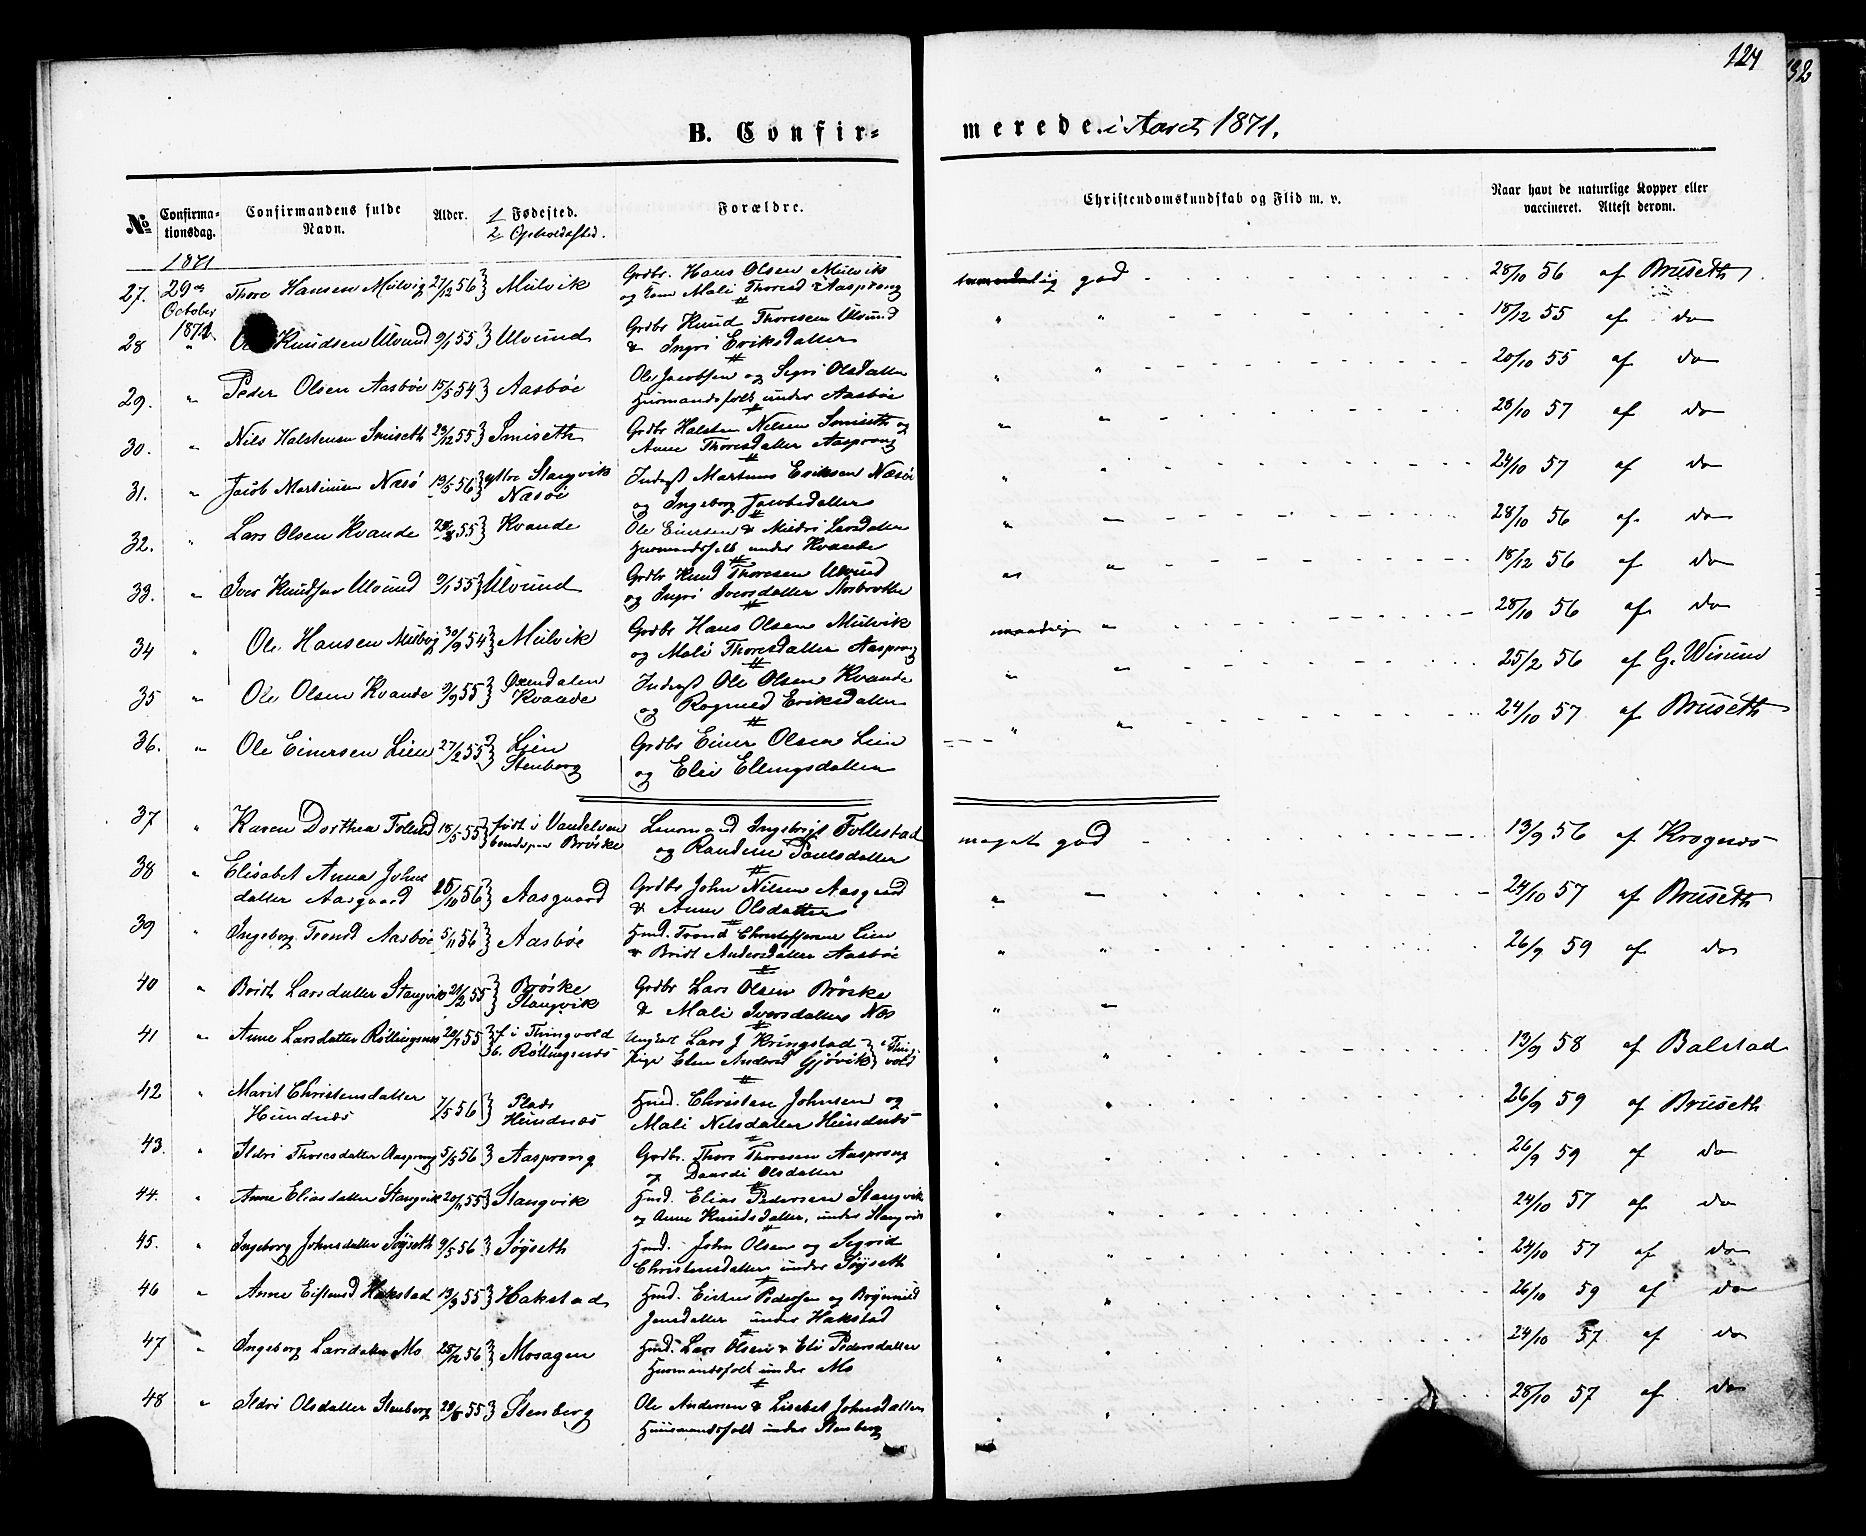 124
32
B. Confir- merede i Aaret 1871.
No Confirmationsdag. Confirmandens fulde Navn. Alder. 1 Fødested. 2 Opholdssted. Forældre. Christendomskundskab og Flid m. v. Naar havt de naturlige Kopper eller vaccineret. Attest derom.
1871
27. 29de October 1871 Thore Hansen Mulvig 27/12 56 } Mulvik Grdbr. Hans Olsen Mulvik god 28/10 56 af Bruseth
og Kone Mali Thoresd Aasprong
28 " Ole Knudsen Ulvund 9/1 55 } Ulvund Grdbr Knud Thoresen Ulvund " " 18/12 55 af do
& Ingri Eriksdatter
29. " Peder Olsen Aasbøe 15/5 54 } Aasbøe Ole Jacobsen og Sigri Olsdatter " " 20/10 55 af do
Husmandsfolk under Aasbøe
30. " Nils Halstensen Smiseth 23/12 55 } Smiseth Grdbr Halsten Nilsen Smiseth og " " 28/10 57 af do
Anne Thoresdatter Aasprong
31. " Jacob Martinusen Næsø 13/5 56 } ytre Stangvik Næsøe Inderst Martinus Eriksen Næsøe " " 24/10 57 af do
og Ingeborg Jacobsdatter
32. " Lars Olsen Kvande 55 } Kvande Ole Einersen & Larsdatter " " 28/10 56 af do
Husmandsfolk under Kvande
33. " Iver Knudsen Ulvund 9/1 55 } Ulvund Grdbr Knud Thoresen Ulvund " " 18/12 56 af do
og Ingri Iversdatter
34 " Ole Hansen Mulvig 30/9 54 } Mulvik Grdbr Hans Olsen Mulvik maadelig " 28/10 56 af do
og Mali Thoresdatter Aasprong
35 " Ole Olsen Kvande 9/9 55 } Øxendalen Kvande Inderst Ole Olsen Kvande " " 25/2 56 af G. Wisund
og Ragnild Eriksdatter
36. " Ole Einersen Lien 27/2 55 } Lien Stenberg Grdbr Einer Olsen Lien " " 24/10 57 af Bruseth
og Elei Ellingsdatter
37 " Karen Dorthea Follestad 18/5 55 } født i bende paa Brøske Lensmand Ingebrigt Follestad meget god 13/9 56 af Krognes
og Randine Paulsdatter
38 " Elisabet Anna Johnsdatter Aasgaard /10 56 } Aasgaard Grdbr John Nilsen Aasgaard " " 24/10 57 af Bruseth
& Anne Olsdatter
39 " Ingeborg Trondsd Aasbøe 5/11 56 } Aasbøe Hmd. Trond Christoffersen Lien " " 26/9 59 af do
& Bridt Andersdatter Aasbøe
40 " Bridt Larsdatter Stangvik 21/2 55 } Brøske Stangvik Grdbr Lars Olsen Brøske " "
& Mali Iversdatter Næs
41 " Anne Larsdatter Røllingsnæs 20/7 55 } f. i Thingvold b. Røllingsnæs Ungkarl Lars J Kringstad } i Thingvold " " 13/9 58 af Balstad
Pige Elen Andersd Gjøvik
42 " Marit Christensdatter Hundnæs 7/5 56 } Plads Hundnæs Hmd. Christen Johnsen og " " 26/9 59 af Bruseth
Mali Nilsdatter Hundnæs
43. " Ildri Thoresdatter Aasprong 5/5 56 } Aasprong Grdbr. Thore Thoresen Aasprong " " 26/9 59 af do
og Daardi Olsdatter
44. " Anne Eliasdatter Stangvik 20/11 55 } Stangvik Hmd. Elias Pedersen Stangvik " " 24/10 57 af do
og Anne Knudsdatter, under Stangvik
45. " Ingeborg Johnsdatter Søyseth 9/5 56 } Søyseth Hmd. John Olsen og Segrid " " 24/10 57 af do
Christensdatter under Søyseth
46 " Anne Eistensd Hakstad 13/3 55 } Hakstad Hmd. Eisten Pedersen og Brynnild " " 26/10 59 af do
Jensdatter under Hakstad
47 " Ingeborg Larsdatter Mo 25/12 56 } Mosagen Hmd. Lars Olsen & Eli Pedersdatter " " 24/10 57 af do
Husmandsfolk under Mo
48 " Ildri Olsdatter Stenberg 29/8 55 } Stenberg Ole Andersen & Lisebet Johnsdatter " " 28/10 57 af do
Husmandsfolk under Stenberg